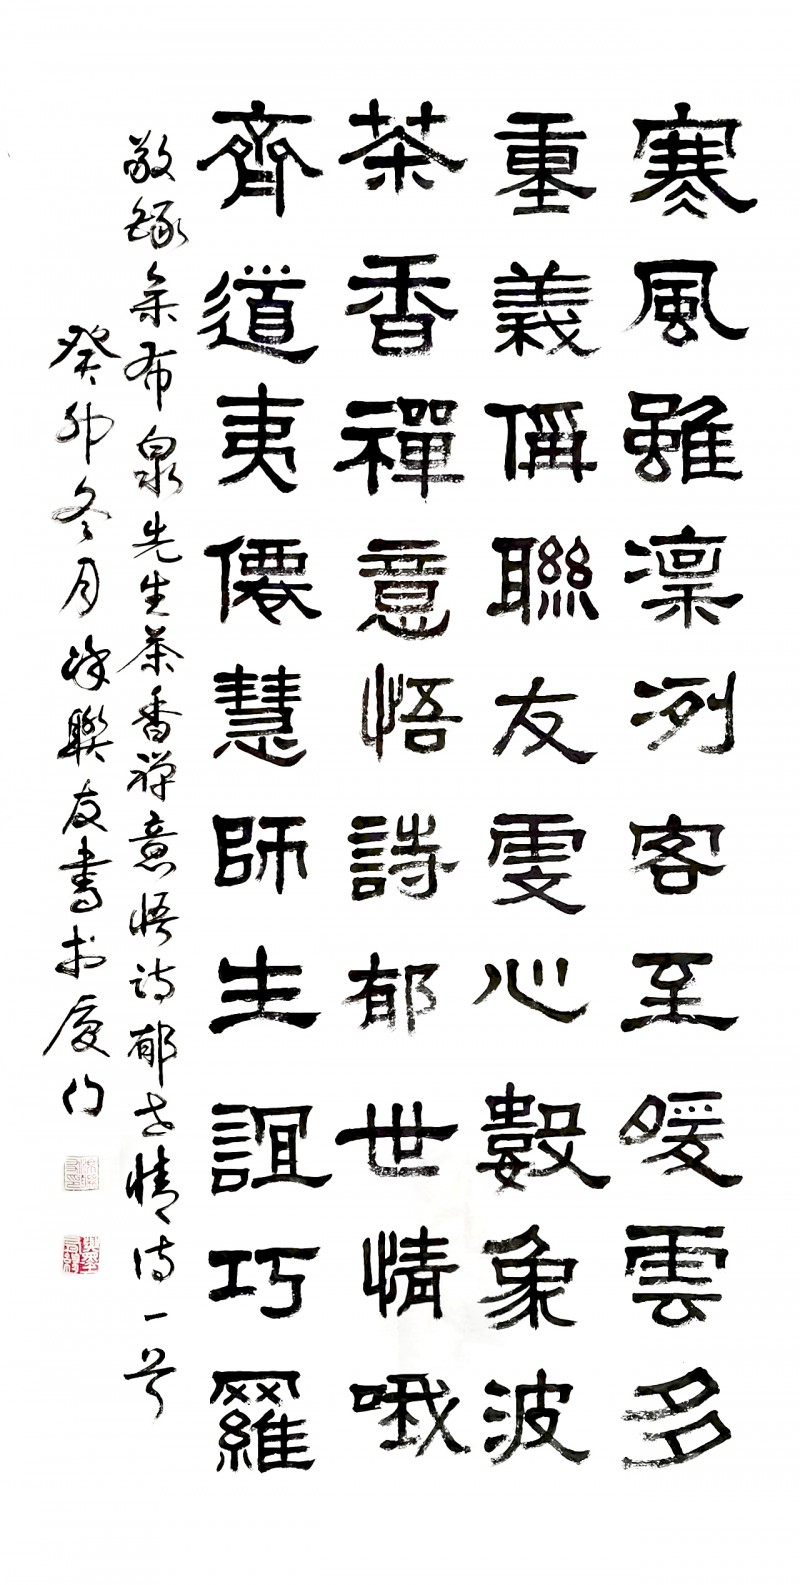 寒風雖凜冽客至暖雲多
重義偁聯友雯心數象波
茶香禪意悟詩郁世情哦
齊道夷僊慧師生誼巧羅
敬録余布泉先生茶香禅意悟诗郁世情诗一首
癸卯冬月聯友書於厦门